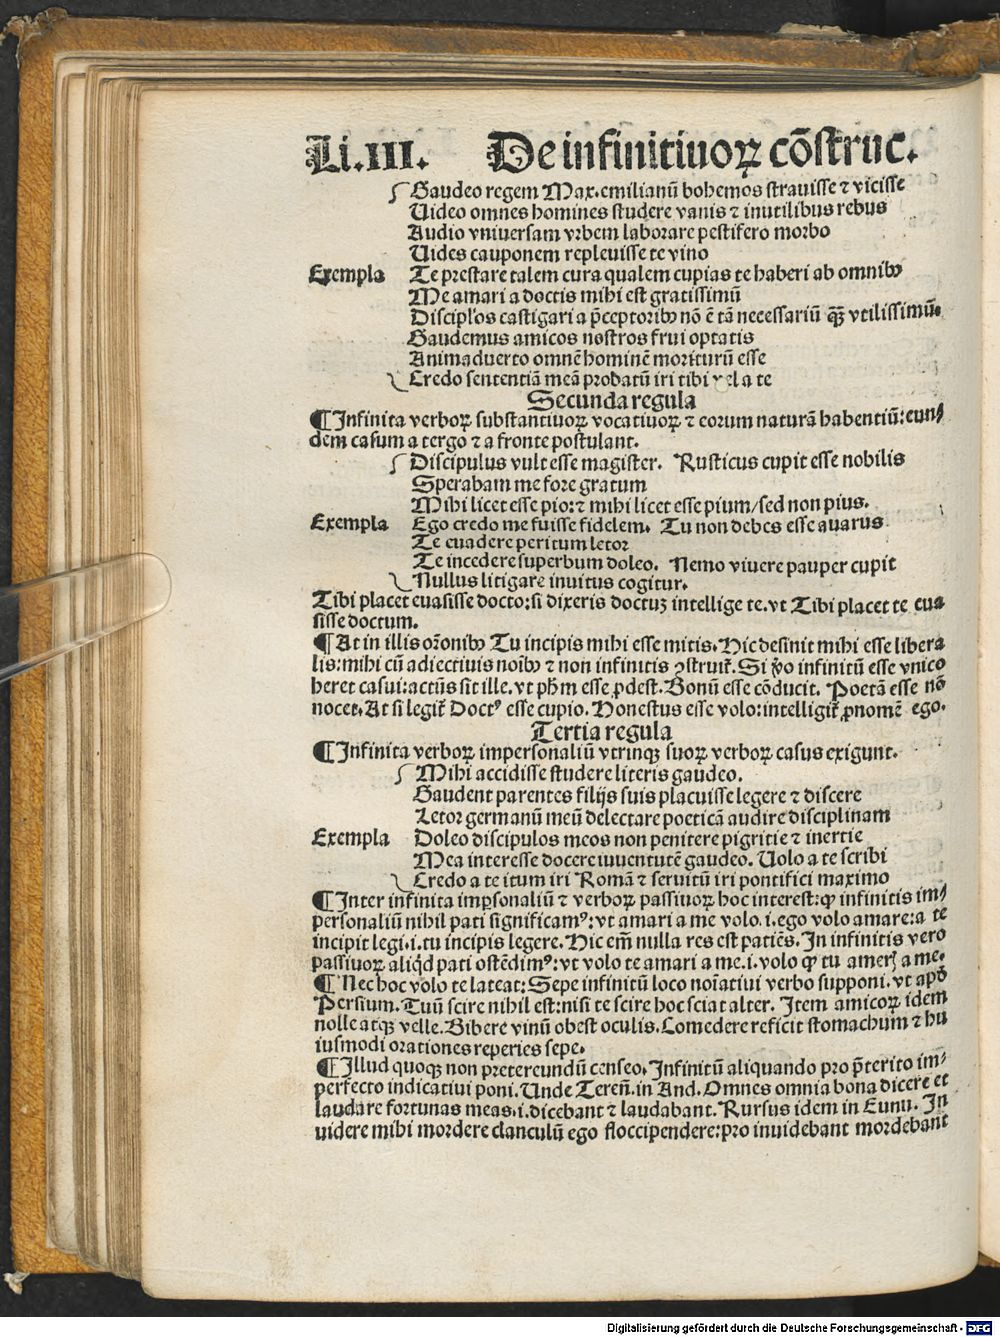 Li.III. De infinitiuoꝝ cõstruc.
Gaudeo regem Max.emilianũ bohemos strauisse ⁊ vicisse
Uideo omnes homines studere vanis ⁊ inutilibus rebus
Audio vniuersam vrbem laborare pestifero morbo
Uides cauponem repleuisse te vino
Exempla Te prestare talem cura qualem cupias te haberi ab omnibꝰ
Me amari a doctis mihi est gratissimũ
Discipl'os castigari a p̃ceptoribꝰ nõ ē tã necessariũ ꝙ̃ꝫ vtilissimũ.
Gaudemus amicos nostros frui optatis
Animaduerto omnē hominē moriturũ esse
Credo sententiã meã probatũ iri tibi vel a te
Secunda regula
¶ Infinita verboꝝ substantiuoꝝ vocatiuoꝝ ⁊ eorum naturã habentiũ: eun/
dem casum a tergo ⁊ a fronte postulant.
Discipulus vult esse magister. Rusticus cupit esse nobilis
Sperabam me fore gratum
Mihi licet esse pio: ⁊ mihi licet esse pium/sed non pius.
Exempla Ego credo me fuisse fidelem. Tu non debes esse auarus
Te euadere peritum letor
Te incedere superbum doleo. Nemo viuere pauper cupit
Nullus litigare inuitus cogitur.
Tibi placet euasisse docto: si dixeris doctuꝫ intellige te. vt Tibi placet te eua
sisse doctum.
¶ At in illis or̃onibꝰ Tu incipis mihi esse mitis. Hic desinit mihi esse libera
lis: mihi cũ adiectiuis noĩbꝰ ⁊ non infinitis ꝯstruit̃. Si ṽo infinitũ esse vnico
heret casui: actũs sit ille. vt ph̃m esse ꝓdest. Bonũ esse cõducit. Poetã esse nõ
nocet. At si legit̃ Doctꝰ esse cupio. Honestus esse volo: intelligit̃ ꝓnomē ego.
Tertia regula
¶ Infinita verboꝝ impersonaliũ vtrinqꝫ suoꝝ verboꝝ casus exigunt.
Mihi accidisse studere literis gaudeo.
Gaudent parentes filijs suis placuisse legere ⁊ discere
Letor germanũ meũ delectare poeticã audire disciplinam
Exempla Doleo discipulos meos non penitere pigritie ⁊ inertie
Mea interesse docere iuuentutē gaudeo. Uolo a te scribi
Credo a te itum iri Romã ⁊ seruitũ iri pontifici maximo
¶ Inter infinita imp̱sonaliũ ⁊ verboꝝ passiuoꝝ hoc interest: ꝙ infinitis im/
personaliũ nihil pati significamꝰ: vt amari a me volo .i. ego volo amare: a te
incipit legi .i. tu incipis legere. Hic em̃ nulla res est patiẽs. In infinitis vero
passiuoꝝ aliq̇d pati ostēdimꝰ: vt volo te amari a me .i. volo ꝙ tu amerꝭ a me.
¶ Nec hoc volo te lateat: Sepe infinitũ loco noĩatiui verbo supponi. vt apḋ
Persium. Tuũ scire nihil est: nisi te scire hoc sciat alter. Item amicoꝝ idem
nolle atqꝫ velle. Bibere vinũ obest oculis. Comedere reficit stomachum ⁊ hu
iusmodi orationes reperies sepe.
¶ Illud quoqꝫ non pretereundũ censeo. Infinitũ aliquando pro p̃terito im/
perfecto indicatiui poni. Unde Tereñ. in And. Omnes omnia bona dicere et
laudare fortunas meas .i. dicebant ⁊ laudabant. Rursus idem in Eunu. In
uidere mihi mordere clanculũ ego floccipendere: pro inuidebant mordebant
Digitalisierung gefördert durch die Deutsche Forschungsgemeinschaft - DFG